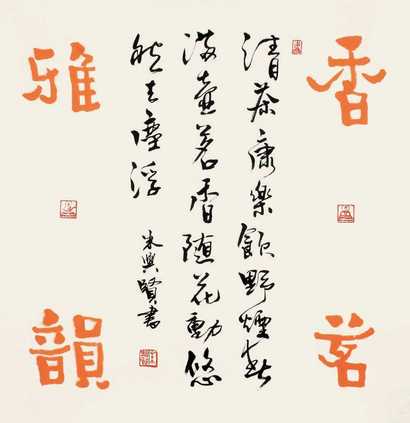 香茗
清茶康樂飲野煙春
滿壺茗香隨花動悠
然去塵浮
朱興賢書
雅韻